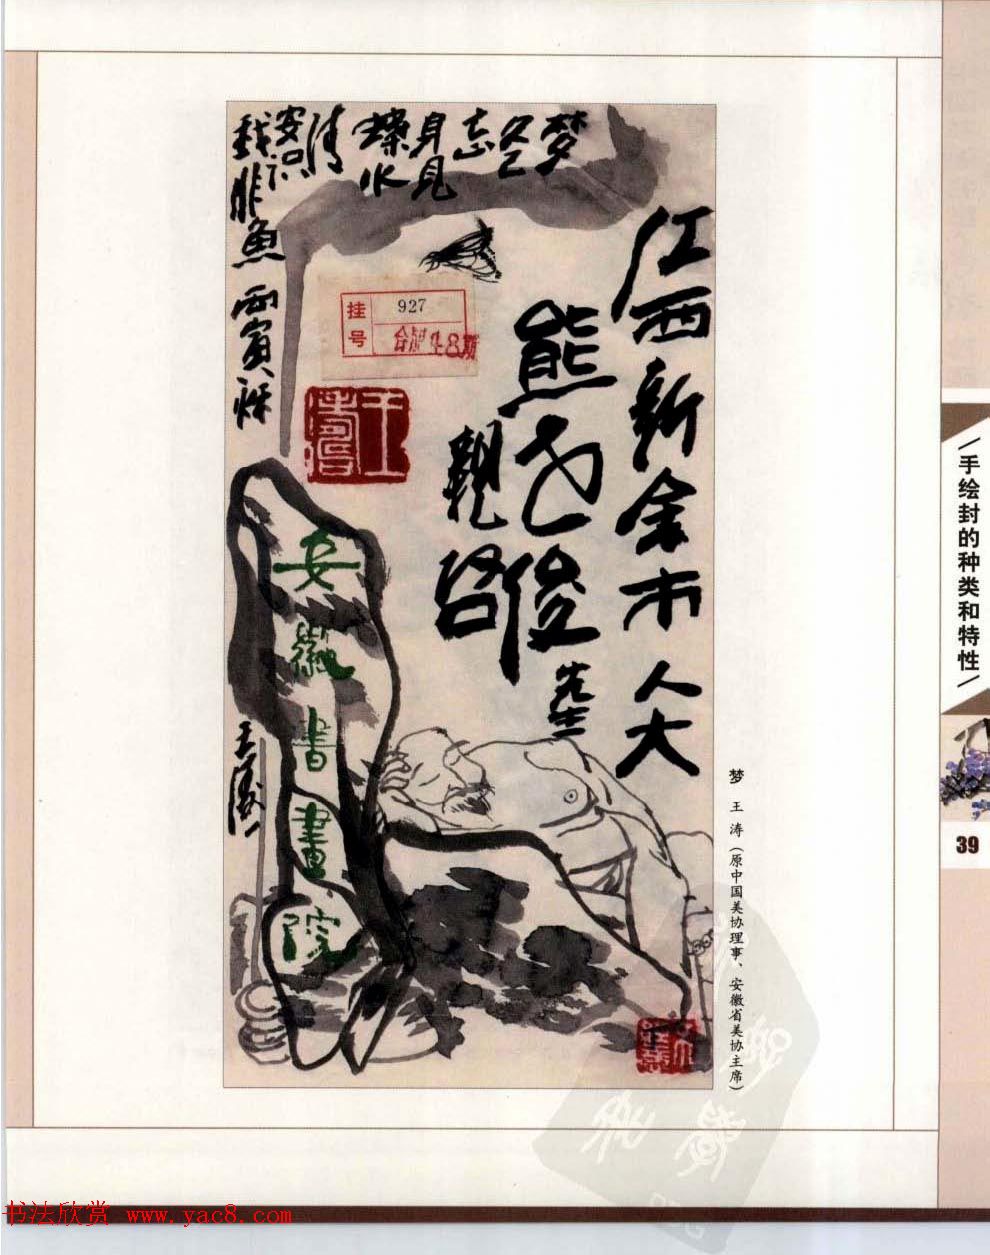 梦
忘
身见
水
清
安识
我非鱼
丙寅秋
江西新余市人大
熊
俊先生
亲启
挂号
927
合肥48
安徽书画院
王涛
梦 王涛（原中国美协理事、安徽省美协主席）
/手绘封的种类和特性/
39
书法欣赏 www.yac8.com